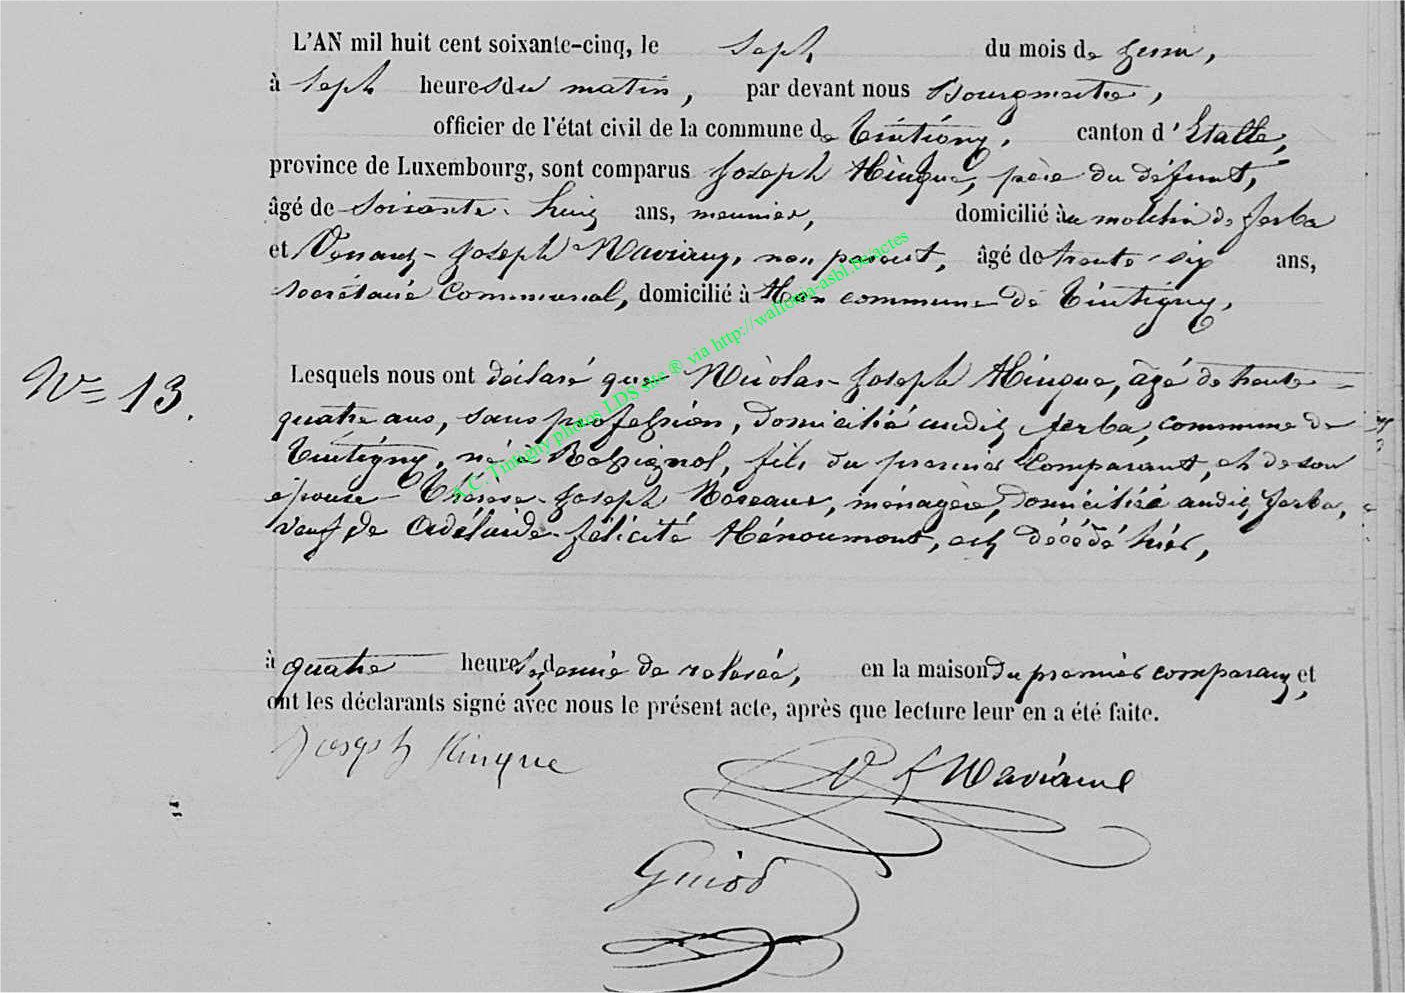 L'AN mil huit cent soixante-cinq, le sept du mois de juin,
à sept heures du matin, par devant nous Bourgmestre,
officier de l'état civil de la commune de Tintigny, canton d'Etalle,
province de Luxembourg, sont comparus Joseph Hinque, père du défunt,
âgé de soixante-huit ans, meunier, domicilié au moulin de Jerba
et Venant-Joseph Maviaux, non parent, âgé de trente-six ans,
secrétaire communal, domicilié à Han commune de Tintigny,
N° 13.
Lesquels nous ont déclaré que Nicolas-Joseph Hinque, âgé de trente-
quatre ans, sans profession, domicilié audit Jerba, commune de
Tintigny, né à Rossignol, fils du premier comparant, et de son
épouse Thérèse-Joseph Moreaux, ménagère, domiciliée audit Jerba,
veuf de Adélaïde-félicité Hénoumont, est décédé hier,
à quatre heures et demie de relevée, en la maison du premier comparant, et
ont les déclarants signé avec nous le présent acte, après que lecture leur en a été faite.
Joseph Hinque
V J Maviaux
Guiod
A.C.Tintigny photos LDS site ® via http://wallonia-asbl.be/actes